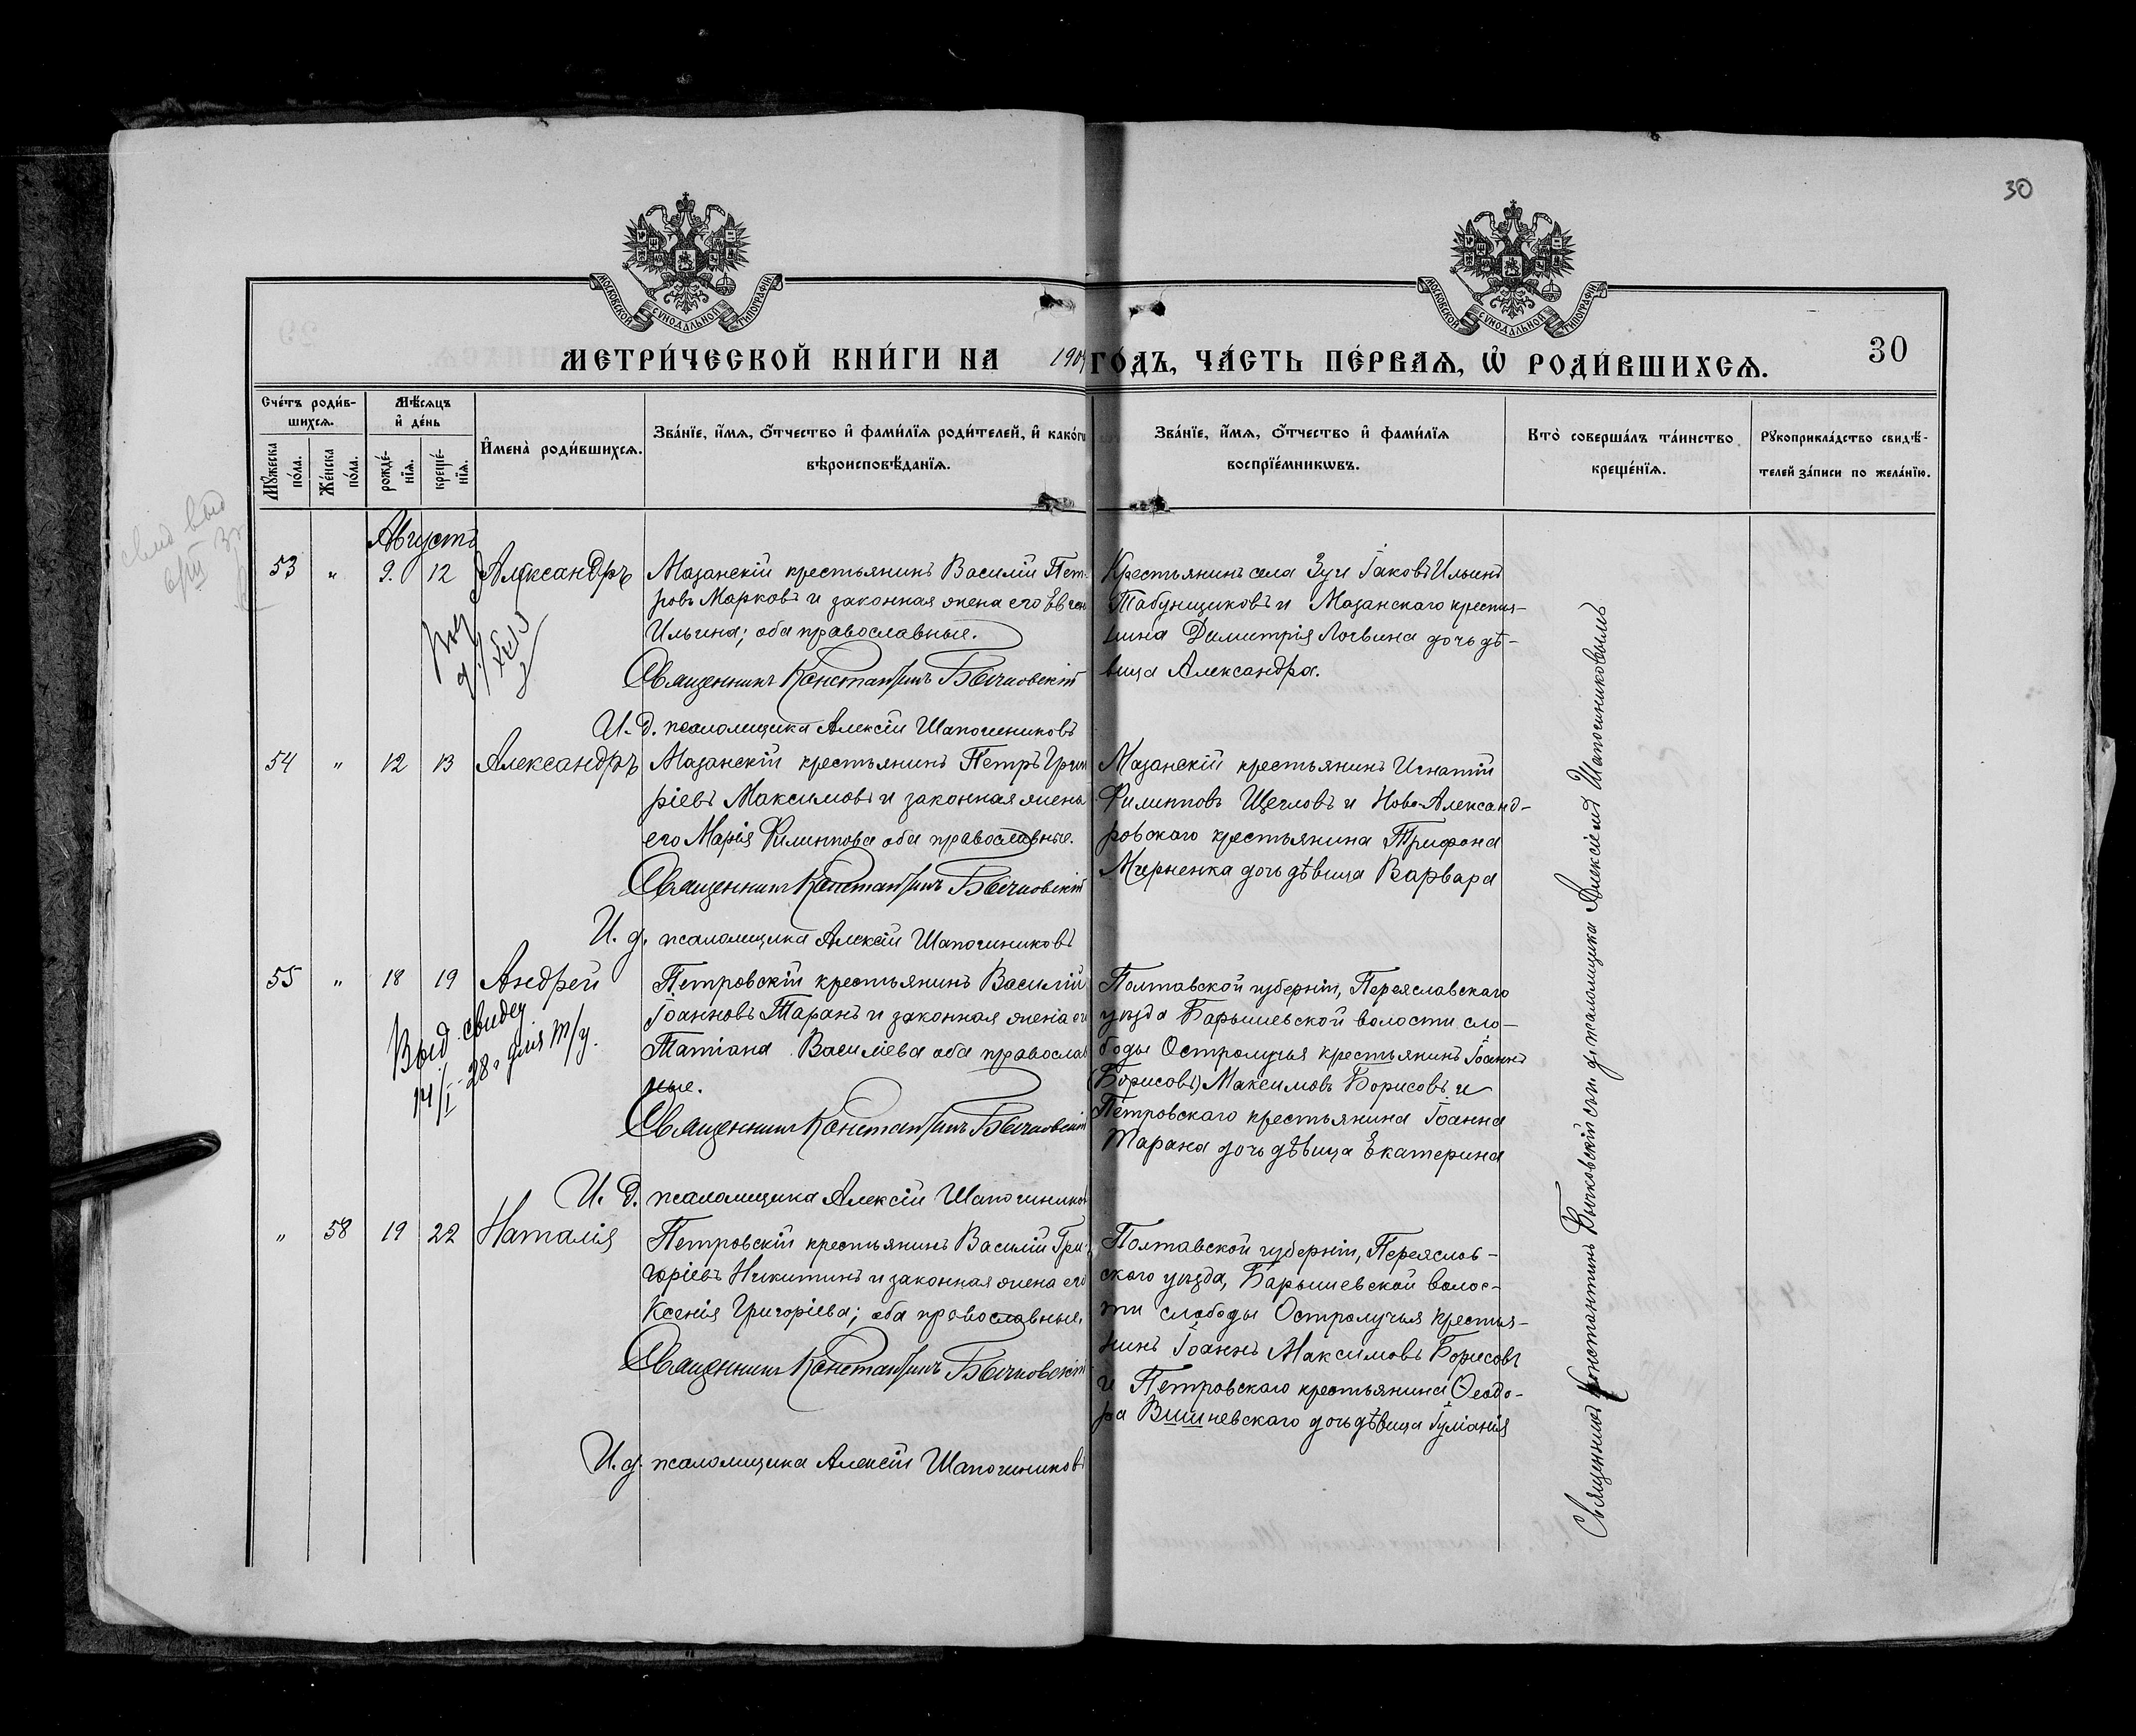 30
МОСКОВСКОЙ СУНОДАЛЬНОЙ ТИПОГРАФІИ
МОСКОВСКОЙ СУНОДАЛЬНОЙ ТИПОГРАФІИ
МЕТРИ́ЧЕСКОЙ КНИ́ГИ НА 1904 ГО́ДЪ, ЧА́СТЬ ПЕ́РВАѦ, Ѡ РОДИ́ВШИХСѦ.
30
Сче́тъ роди́в-
шихсѧ.
Мꙋ́жеска
по́ла.
Же́нска
по́ла.
Мѣ́сѧцъ
и҆ де́нь
рожде́-
нїѧ.
креще́-
нїѧ.
И҆мена̀ роди́вшихсѧ.
Зва́нїе, и҆́мѧ, ѻ҆́тчество и҆ фами́лїѧ роди́телей, и҆ како́гѡ
вѣроисповѣ́данїѧ.
Зва́нїе, и҆́мѧ, ѻ҆́тчество и҆ фами́лїѧ
воспрїе́мникѡвъ.
Кто̀ соверша́лъ та́инство
креще́нїѧ.
Рꙋкоприкла́дство свидѣ́-
телей за́писи по жела́нїю.
свид выд
Августъ
53 " 9. 12 Александръ
Мазанскій крестьянинъ Василій Пет-
ровъ Марковъ и законная жена его
Ильина; оба православные.
Священникъ Константинъ Бычковскій
И. д. псаломщика Алексій Шапошниковъ
Крестьянинъ села Зуи Іаковъ Ильинъ
Табунщиковъ и Мазанскаго крестья-
нина Димитрія Логвина дочь дѣ-
вица Александра.
54 " 12 13 Александръ
Мазанскій крестьянинъ Петръ Григо
ріевъ Максимовъ и законная жена
его Марія Филиппова оба православные.
Священникъ Константинъ Бычковскій
И. д. псаломщика Алексій Шапошниковъ
Мазанскій крестьянинъ Игнатій
Филипповъ Щегловъ и Ново-Александ-
ровскаго крестьянина Трифона
дочь дѣвица Варвара
55 " 18 19 Андрей
Выд. свидет
14/I 28 г для т/у.
Петровскій крестьянинъ Василій
Іоанновъ Таранъ и законная жена его
Татіана Василіева оба православ
ные.
Священникъ Константинъ Бычковскій
И. д. псаломщика Алексій Шапошников
Полтавской губерніи, Переяславскаго
уѣзда Барышевской волости сло-
боды Остролучья крестьянинъ Іоаннъ
(Борисовъ) Максимовъ Борисовъ и
Петровскаго крестьянина Іоанна
Тарана дочь дѣвица Екатерина
" 58 19 22 Наталія
Петровскій крестьянинъ Василій Гри-
горіевъ Никитинъ и законная жена его
Ксенія Григоріева; оба православные.
Священникъ Константинъ Бычковскій
И. д. псаломщика Алексій Шапошниковъ
Полтавской губерніи, Переяслав-
скаго уѣзда, Барышевской волос-
ти слободы Остролучья крестья-
нинъ Іоаннъ Максимовъ Борисовъ
и Петровскаго крестьянина Ѳеодо-
ра Вишневскаго дочь дѣвица Іуліанія
Священникъ Константинъ Бычковскій съ и д псаломщика Алексіемъ Шапошниковымъ